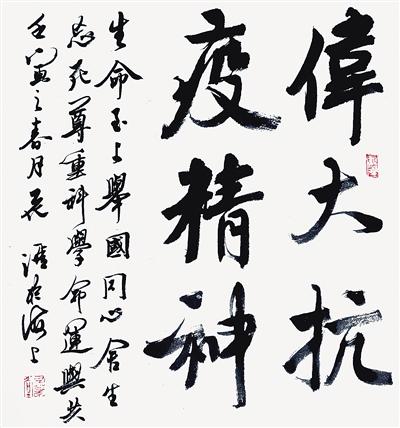 偉大抗
疫精神
生命至上舉國同心舍生
忘死尊重科學命運與共
壬寅之春月 於海上